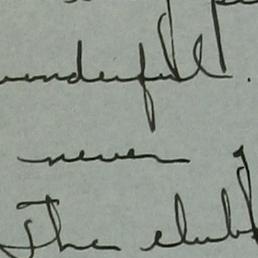 wonderful.
never
The club